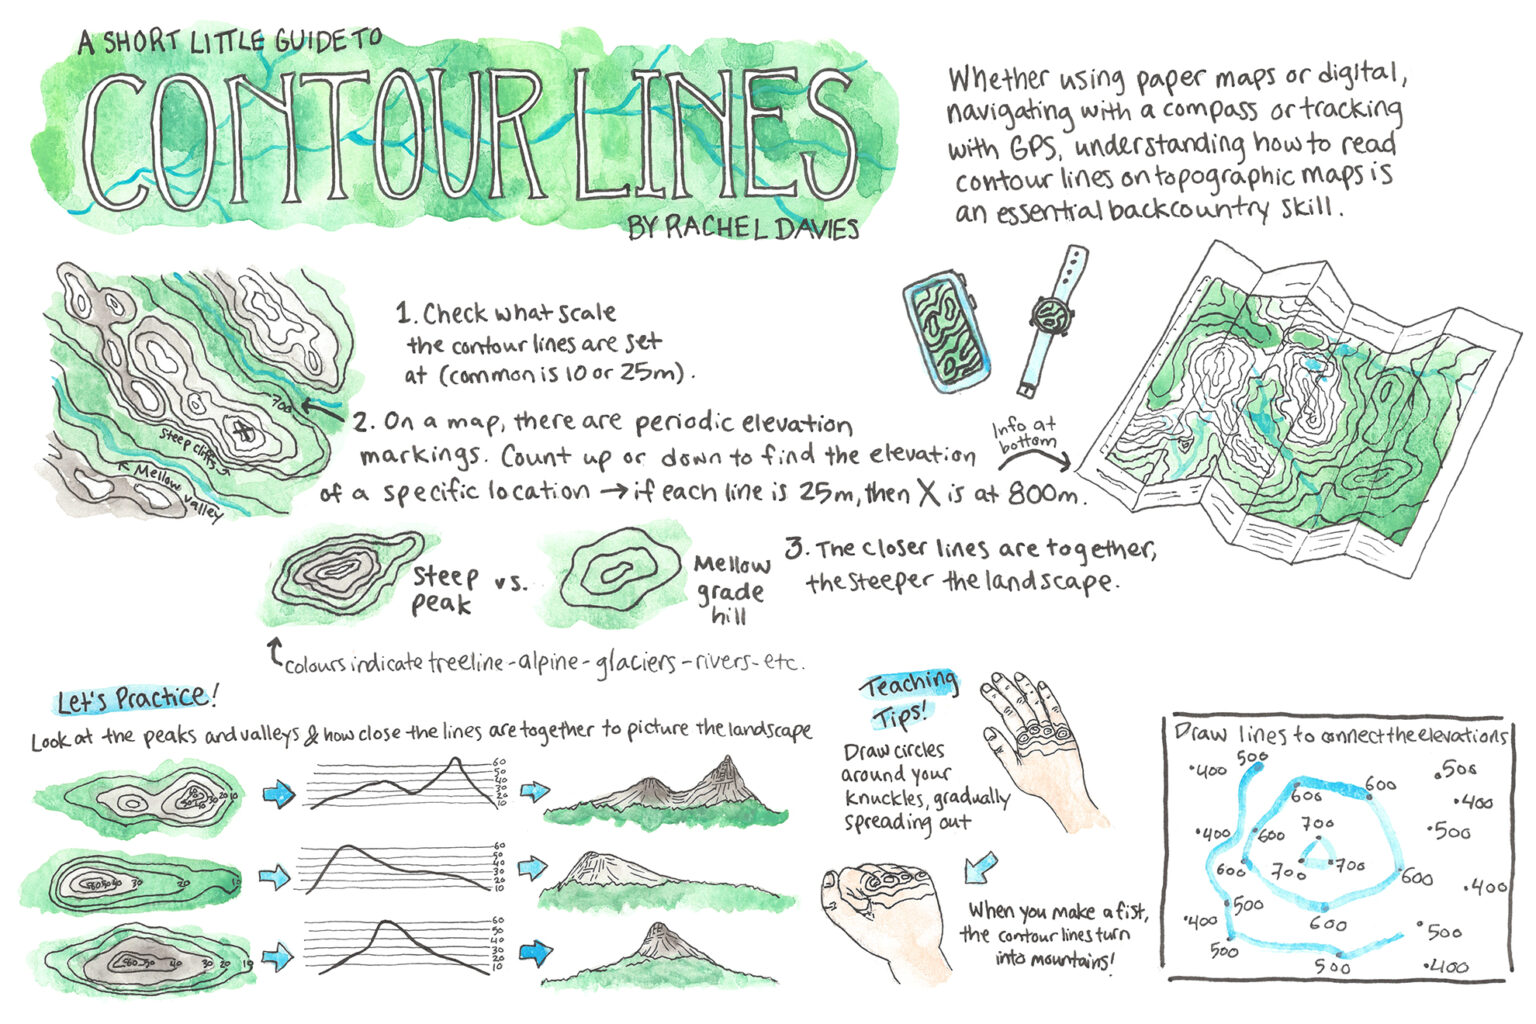 A SHORT LITTLE GUIDE TO
CONTOUR LINES
BY RACHEL DAVIES
Whether using paper maps or digital,
navigating with a compass or tracking
with GPS, understanding how to read
contour lines on topographic maps is
an essential backcountry skill.
1. Check what scale
the contour lines are set
at (common is 10 or 25m).
700
Steep cliffs
Mellow valley
2. On a map, there are periodic elevation
markings. Count up or down to find the elevation
of a specific location → if each line is 25m, then X is at 800m.
Info at
bottom
Steep
peak
vs.
Mellow
grade
hill
3. The closer lines are together,
the steeper the landscape.
colours indicate treeline - alpine - glaciers - rivers - etc.
Let's Practice!
Look at the peaks and valleys & how close the lines are together to picture the landscape
60
50
40
30
20
10
60
50
40
30
20
10
60
50
40
30
20
10
Teaching
Tips!
Draw circles
around your
knuckles, gradually
spreading out
When you make a fist,
the contour lines turn
into mountains!
Draw lines to connect the elevations
400 500 500
600 600 400
400 600 700 500
600 700 700 600 400
400 500 600 500
500 500 400